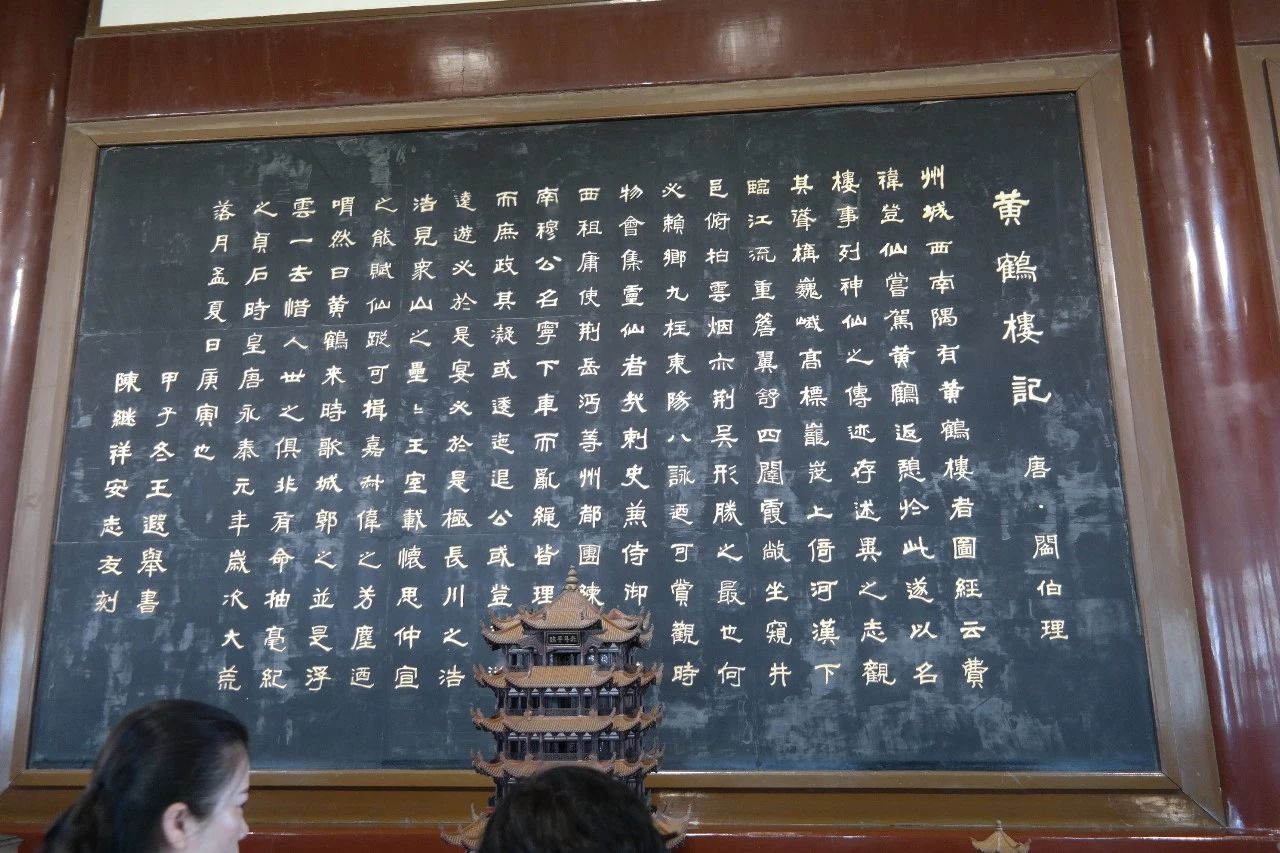 黄鶴樓記 唐·閻伯理
州城西南隅有黄鶴樓者圖經云費
禕登仙嘗駕黄鶴返憩於此遂以名
樓事列神仙之傳迹存述異之志觀
其聳構巍峨髙標巃嵸上倚河漢下
臨江流重簷翼舒四闥霞敞坐窺井
邑俯拍雲烟亦荆吴形勝之最也何
必賴鄉九柱東陽八詠廼可賞觀時
物會集靈仙者哉刺史兼侍御
西租庸使荆岳沔等州都團練
南穆公名寧下車而亂繩皆理
而庶政其凝或逶迤退公或登
遠遊必於是宴必於是極長川之浩
浩見衆山之壘〻王室載懷思仲宣
之能賦仙蹤可揖嘉叔偉之芳塵廼
喟然曰黄鶴來時歌城郭之並是浮
雲一去惜人世之俱非有命抽毫紀
之貞石時皇唐永泰元年歲次大荒
落月孟夏日庚寅也
甲子冬王遐舉書
陳継祥安志友刻